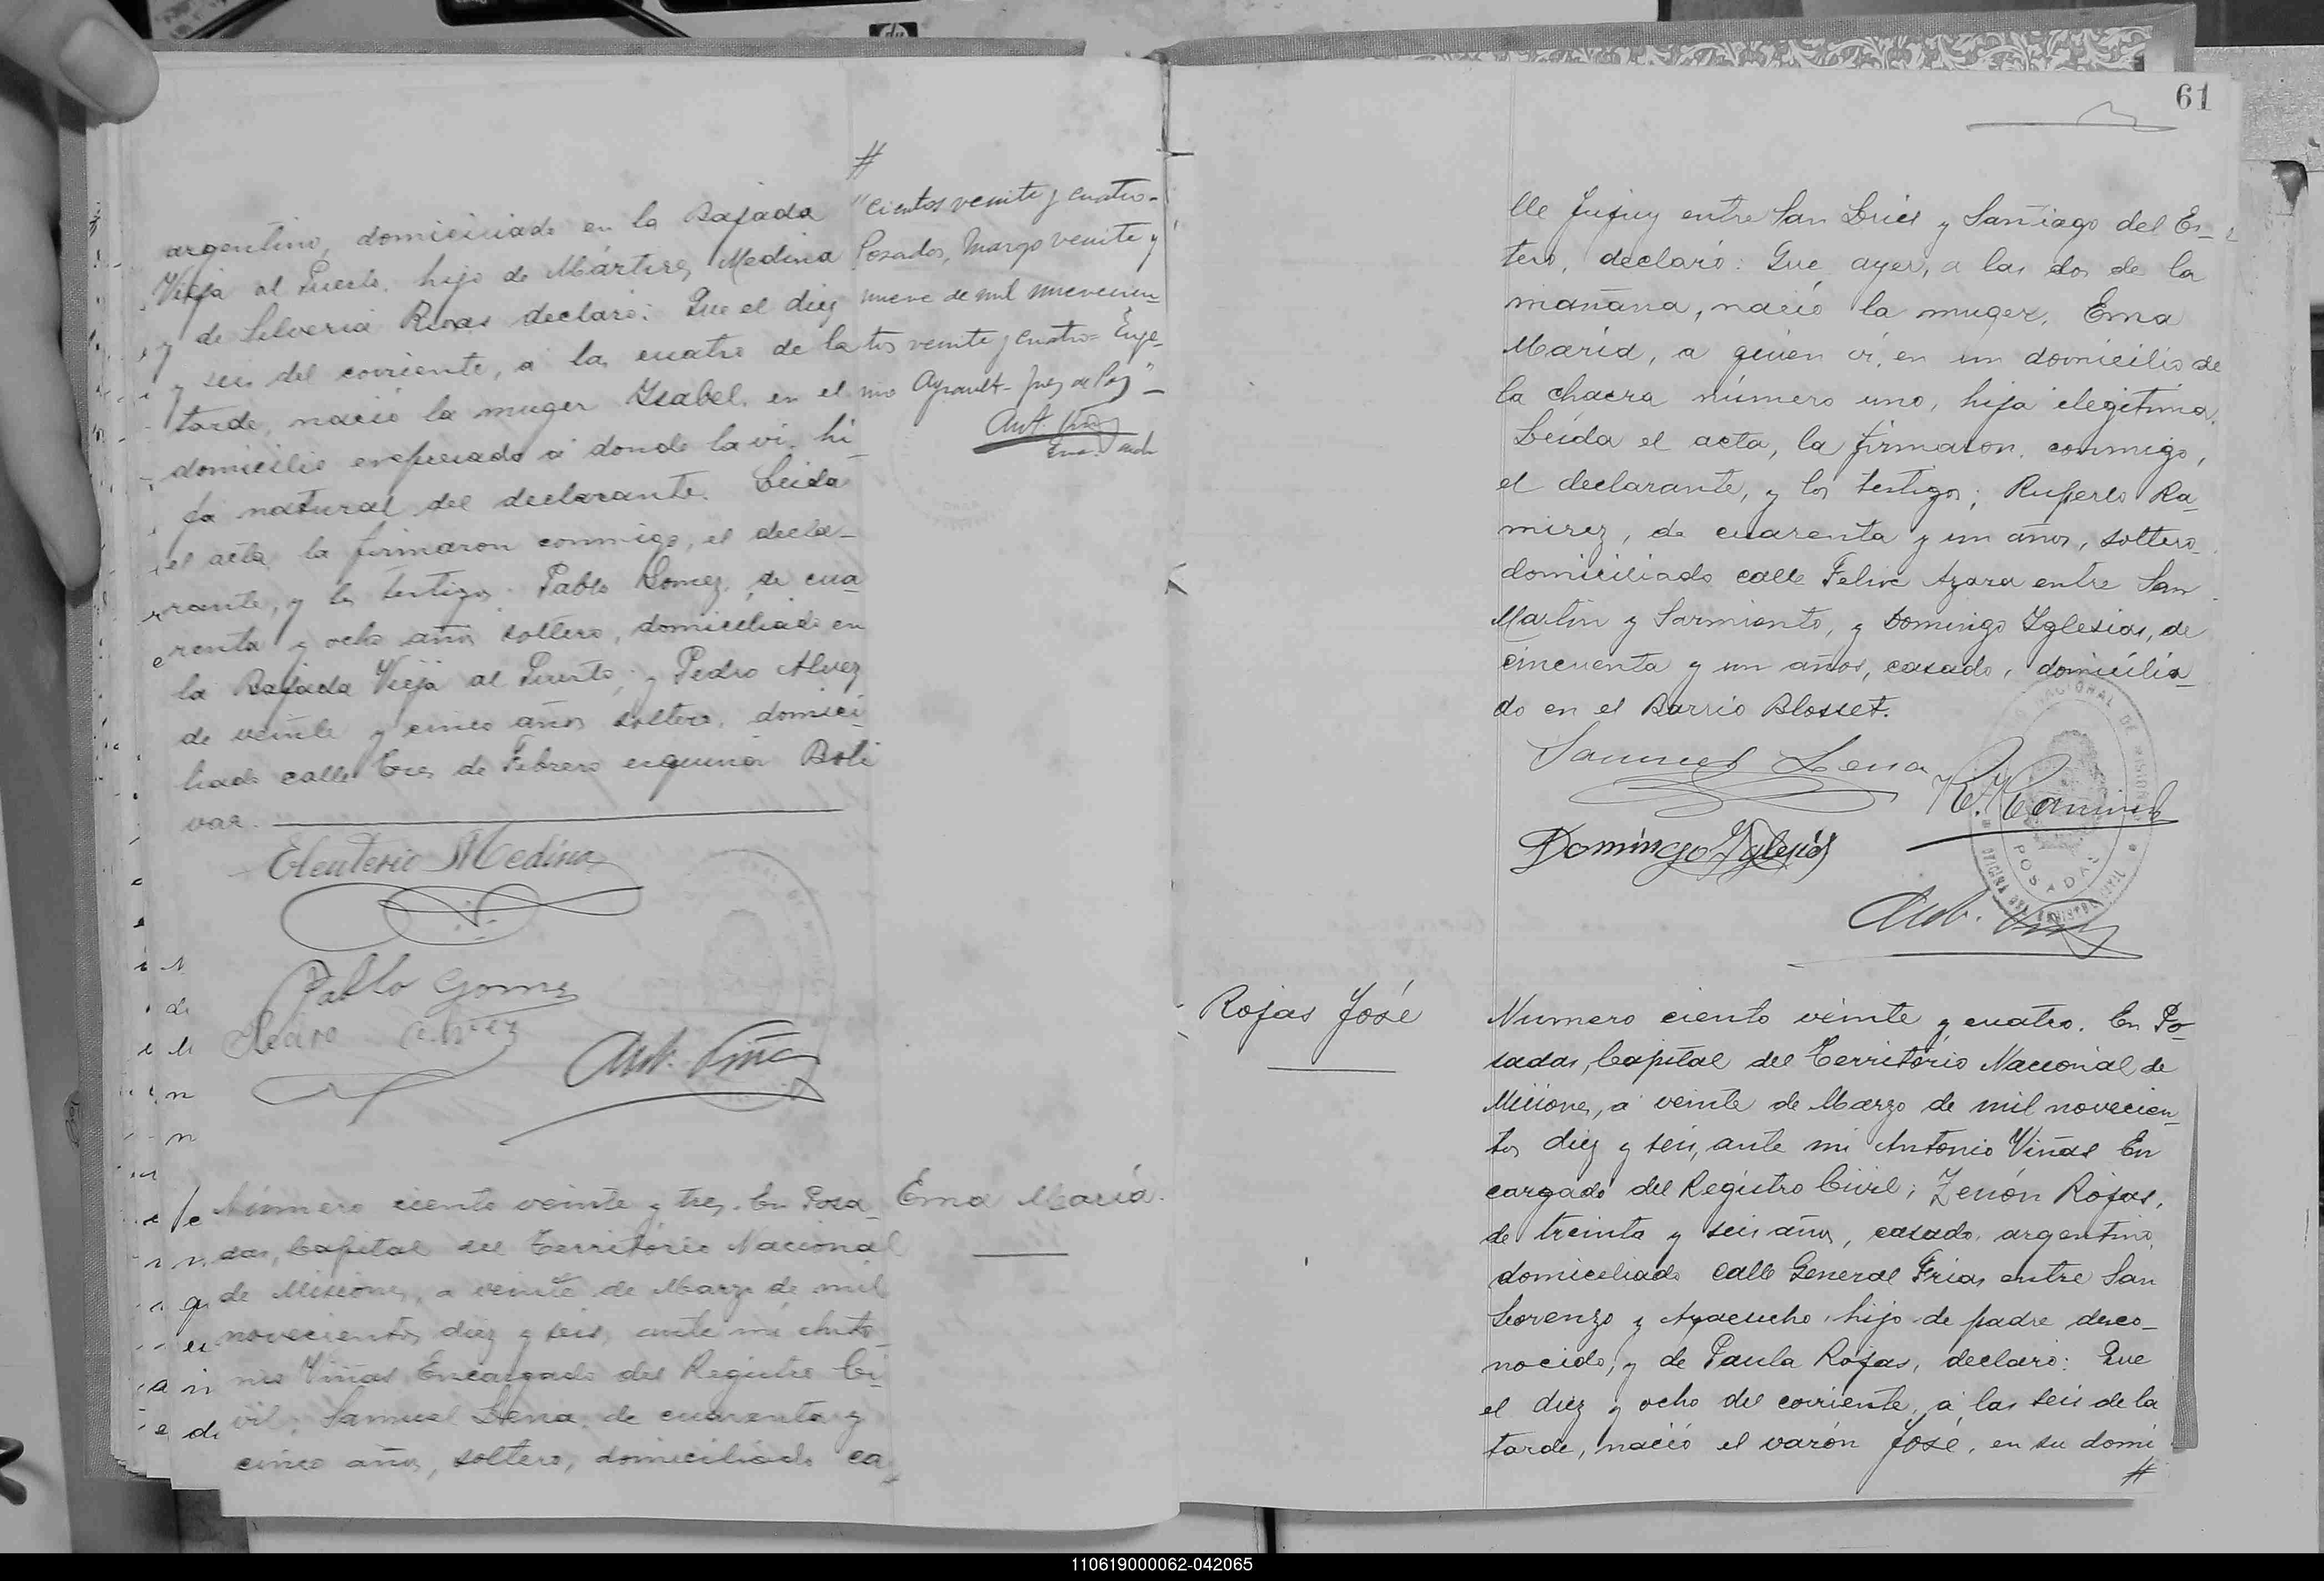 argentino, domiciliado en la Bajada
Vieja al Puerto, hijo de Mártires Medina
y de Silveria Rivas declaró: Que el diez
y seis del corriente, a las cuatro de la
tarde, nació la muger Ysabel, en el
domicilio expresado a donde la vi, hi
ja natural del declarante. Leida
el acta, la firmaron conmigo, el decla-
rante, y los testigos: Pablo Gomez, de cua
renta y ocho años soltero, domiciliado en
la Bajada Vieja al Puerto, y Pedro Alvez
de veinte y cinco años soltero, domici-
liado calle Tres de Febrero esquina Boli
var.
Eleuterio Medina
Pablo Gomez
Pedro Alvez
Ant. Viñas
#
"cientos veinte y cuatro-
Posadas, Marzo veinte y
nueve de mil novecien-
tos veinte y cuatro= Euge-
nio Ayrault- Juez de Paz"-
Ant. Viñas
Número ciento veinte y tres. En Posa-
das, Capital del Territorio Nacional
de Misiones, a veinte de Marzo de mil
novecientos diez y seis, ante mi Anto-
nio Viñas Encargado del Registro Ci-
vil; Samuel Lena, de cuarenta y
cinco años, soltero, domiciliado ca-
Ema María.
61
lle Jujuy entre San Luis y Santiago del Es-
tero, declaró: Que ayer, a las dos de la
mañana, nació la muger, Ema
María, a quien vi, en un domicilio de
la chacra número uno, hija ilegitima.
Leída el acta, la firmaron, conmigo,
el declarante, y los testigos; Ruperto Ra-
mirez, de cuarenta y un años, soltero
domiciliado calle Felix Azara entre San
Martin y Sarmiento, y Domingo Yglesias, de
cincuenta y un años, casado, domicilia-
do en el Barrio Blosset.
Samuel Lena
R. Ramirez
Domingo Yglesias
Ant. Viñas
Rojas José
Numero ciento veinte y cuatro. En Po-
sadas, Capital del Territorio Nacional de
Misiones, a veinte de Marzo de mil novecien-
tos diez y seis, ante mi Antonio Viñas En
cargado del Registro Civil; Zenón Rojas,
de treinta y seis años, casado, argentino,
domiciliado calle General Frias entre San
Lorenzo y Ayacucho, hijo de padre desco-
nocido, y de Paula Rojas, declaró: Que
el diez y ocho del corriente, a las seis de la
tarde, nació el varón José, en su domi
#
110619000062-042065